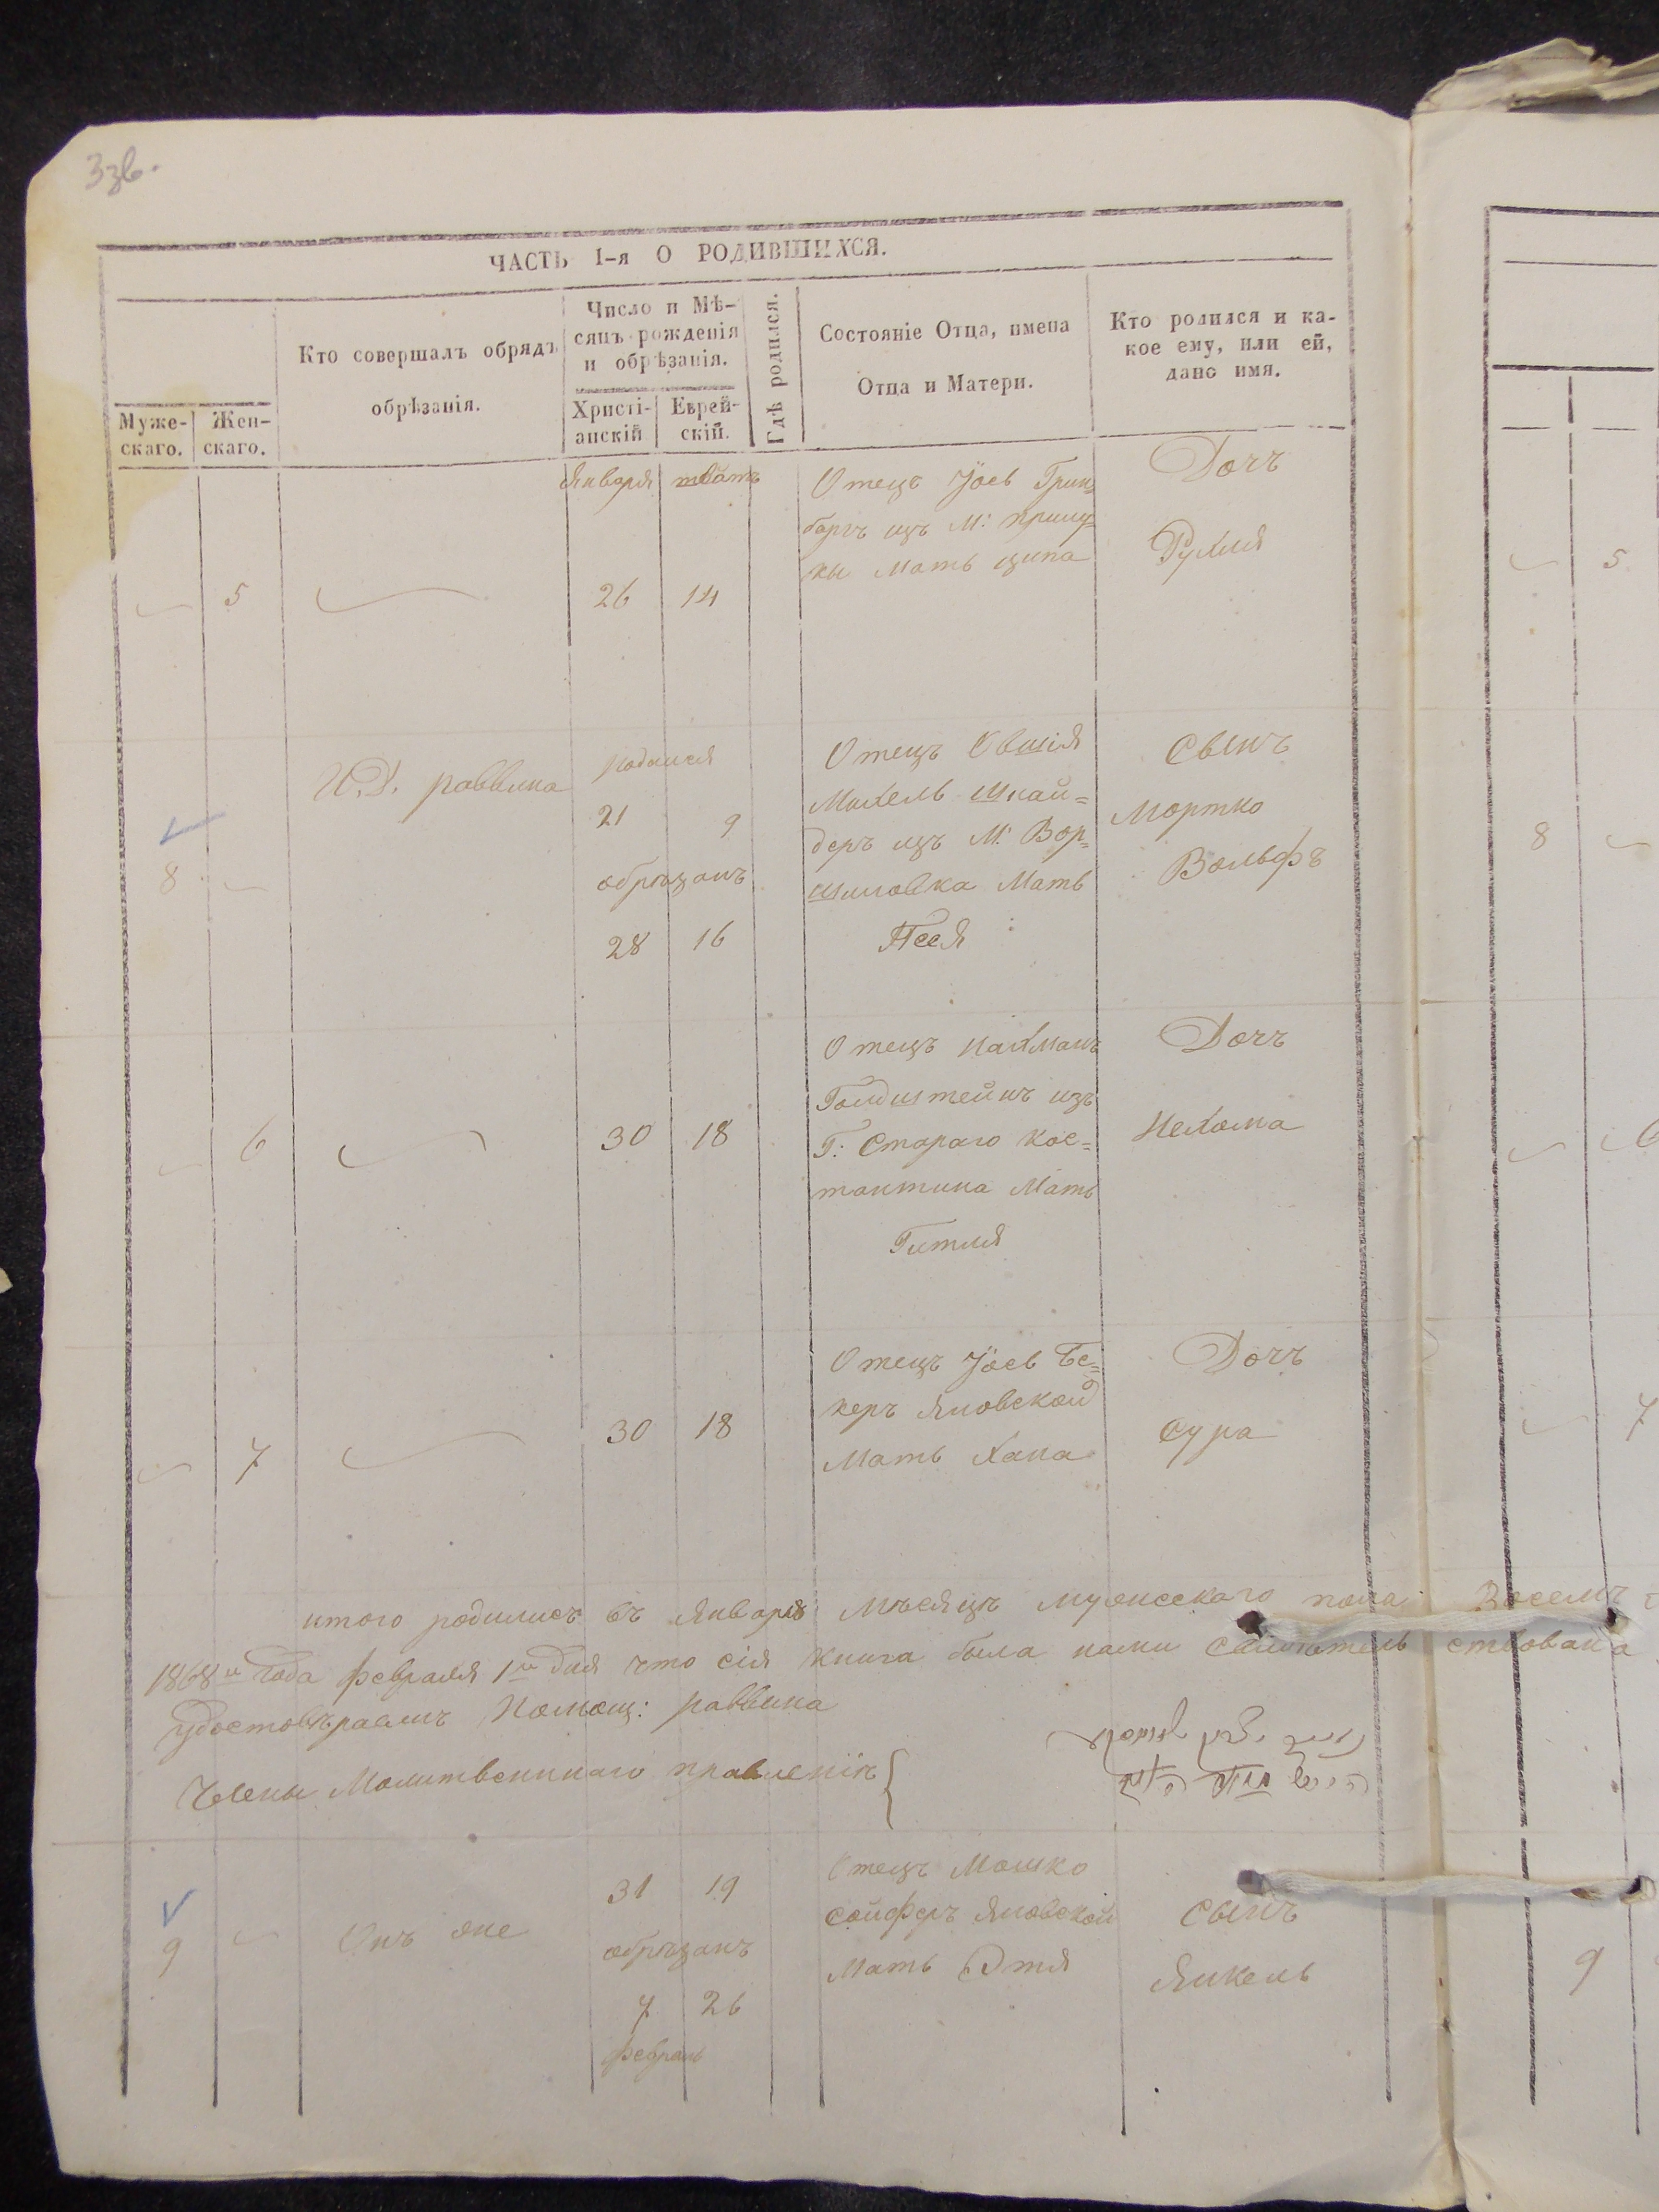 3зв.
ЧАСТЬ 1-я О РОДИВШИХСЯ.
Муже-
скаго.
Жен-
скаго.
Кто совершалъ обрядъ
обрѣзанія.
Число и Мѣ-
сяцъ рожденія
и обрѣзанія.
Христі-
анскій
Еврей-
скій.
Гдѣ родился.
Состояніе Отца, имена
Отца и Матери.
Кто родился и ка-
кое ему, или ей,
дано имя.
Января
5
26 14
Отецъ Іосъ Грин=
баргъ изъ М: прилу=
ки Мать ципа
Дочъ
Рухля
5
8
И.Д. раввина
родился
21 9
обрѣзанъ
28 16
Отецъ Овшія
Михель Шнай=
деръ изъ М: Вор=
шиловка Мать
Песя
Сынъ
Мортко
Вольфъ
8
6
30 18
Отецъ Нахманъ
Голдштейнъ изъ
Г: Стараго Кос=
тантина Мать
Гитля
Дочъ
Нехома
6
7
30 18
Отецъ Іосъ Бе=
керъ Яновской
Мать Хана
Дочъ
Сура
7
итого родилисъ въ Январѣ Мѣсяцѣ мужескаго пола Восемъ
1868го года февраля 1го дня что сія книга была нами свидѣтельствована
удостовѣраемъ Помощ: раввина
Члены Молитвенннаго правленія
9
Онъ же
31 19
обрѣзанъ
7 26
февраль
Отецъ Мошко
Сойферъ Яновской
Мать Этя
Сынъ
Янкель
9